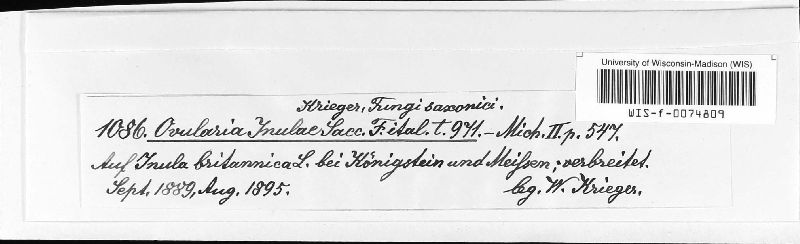 University of Wisconsin-Madison (WIS)
WIS-f-0074809
Krieger, Fungi saxonici.
1086. Ovularia Inulae Sacc. F. ital. t. 971. – Mich. II p. 547.
Auf Inula britannica L. bei Königstein und Meißen; verbreitet.
Sept. 1889, Aug. 1895.
leg. W. Krieger.